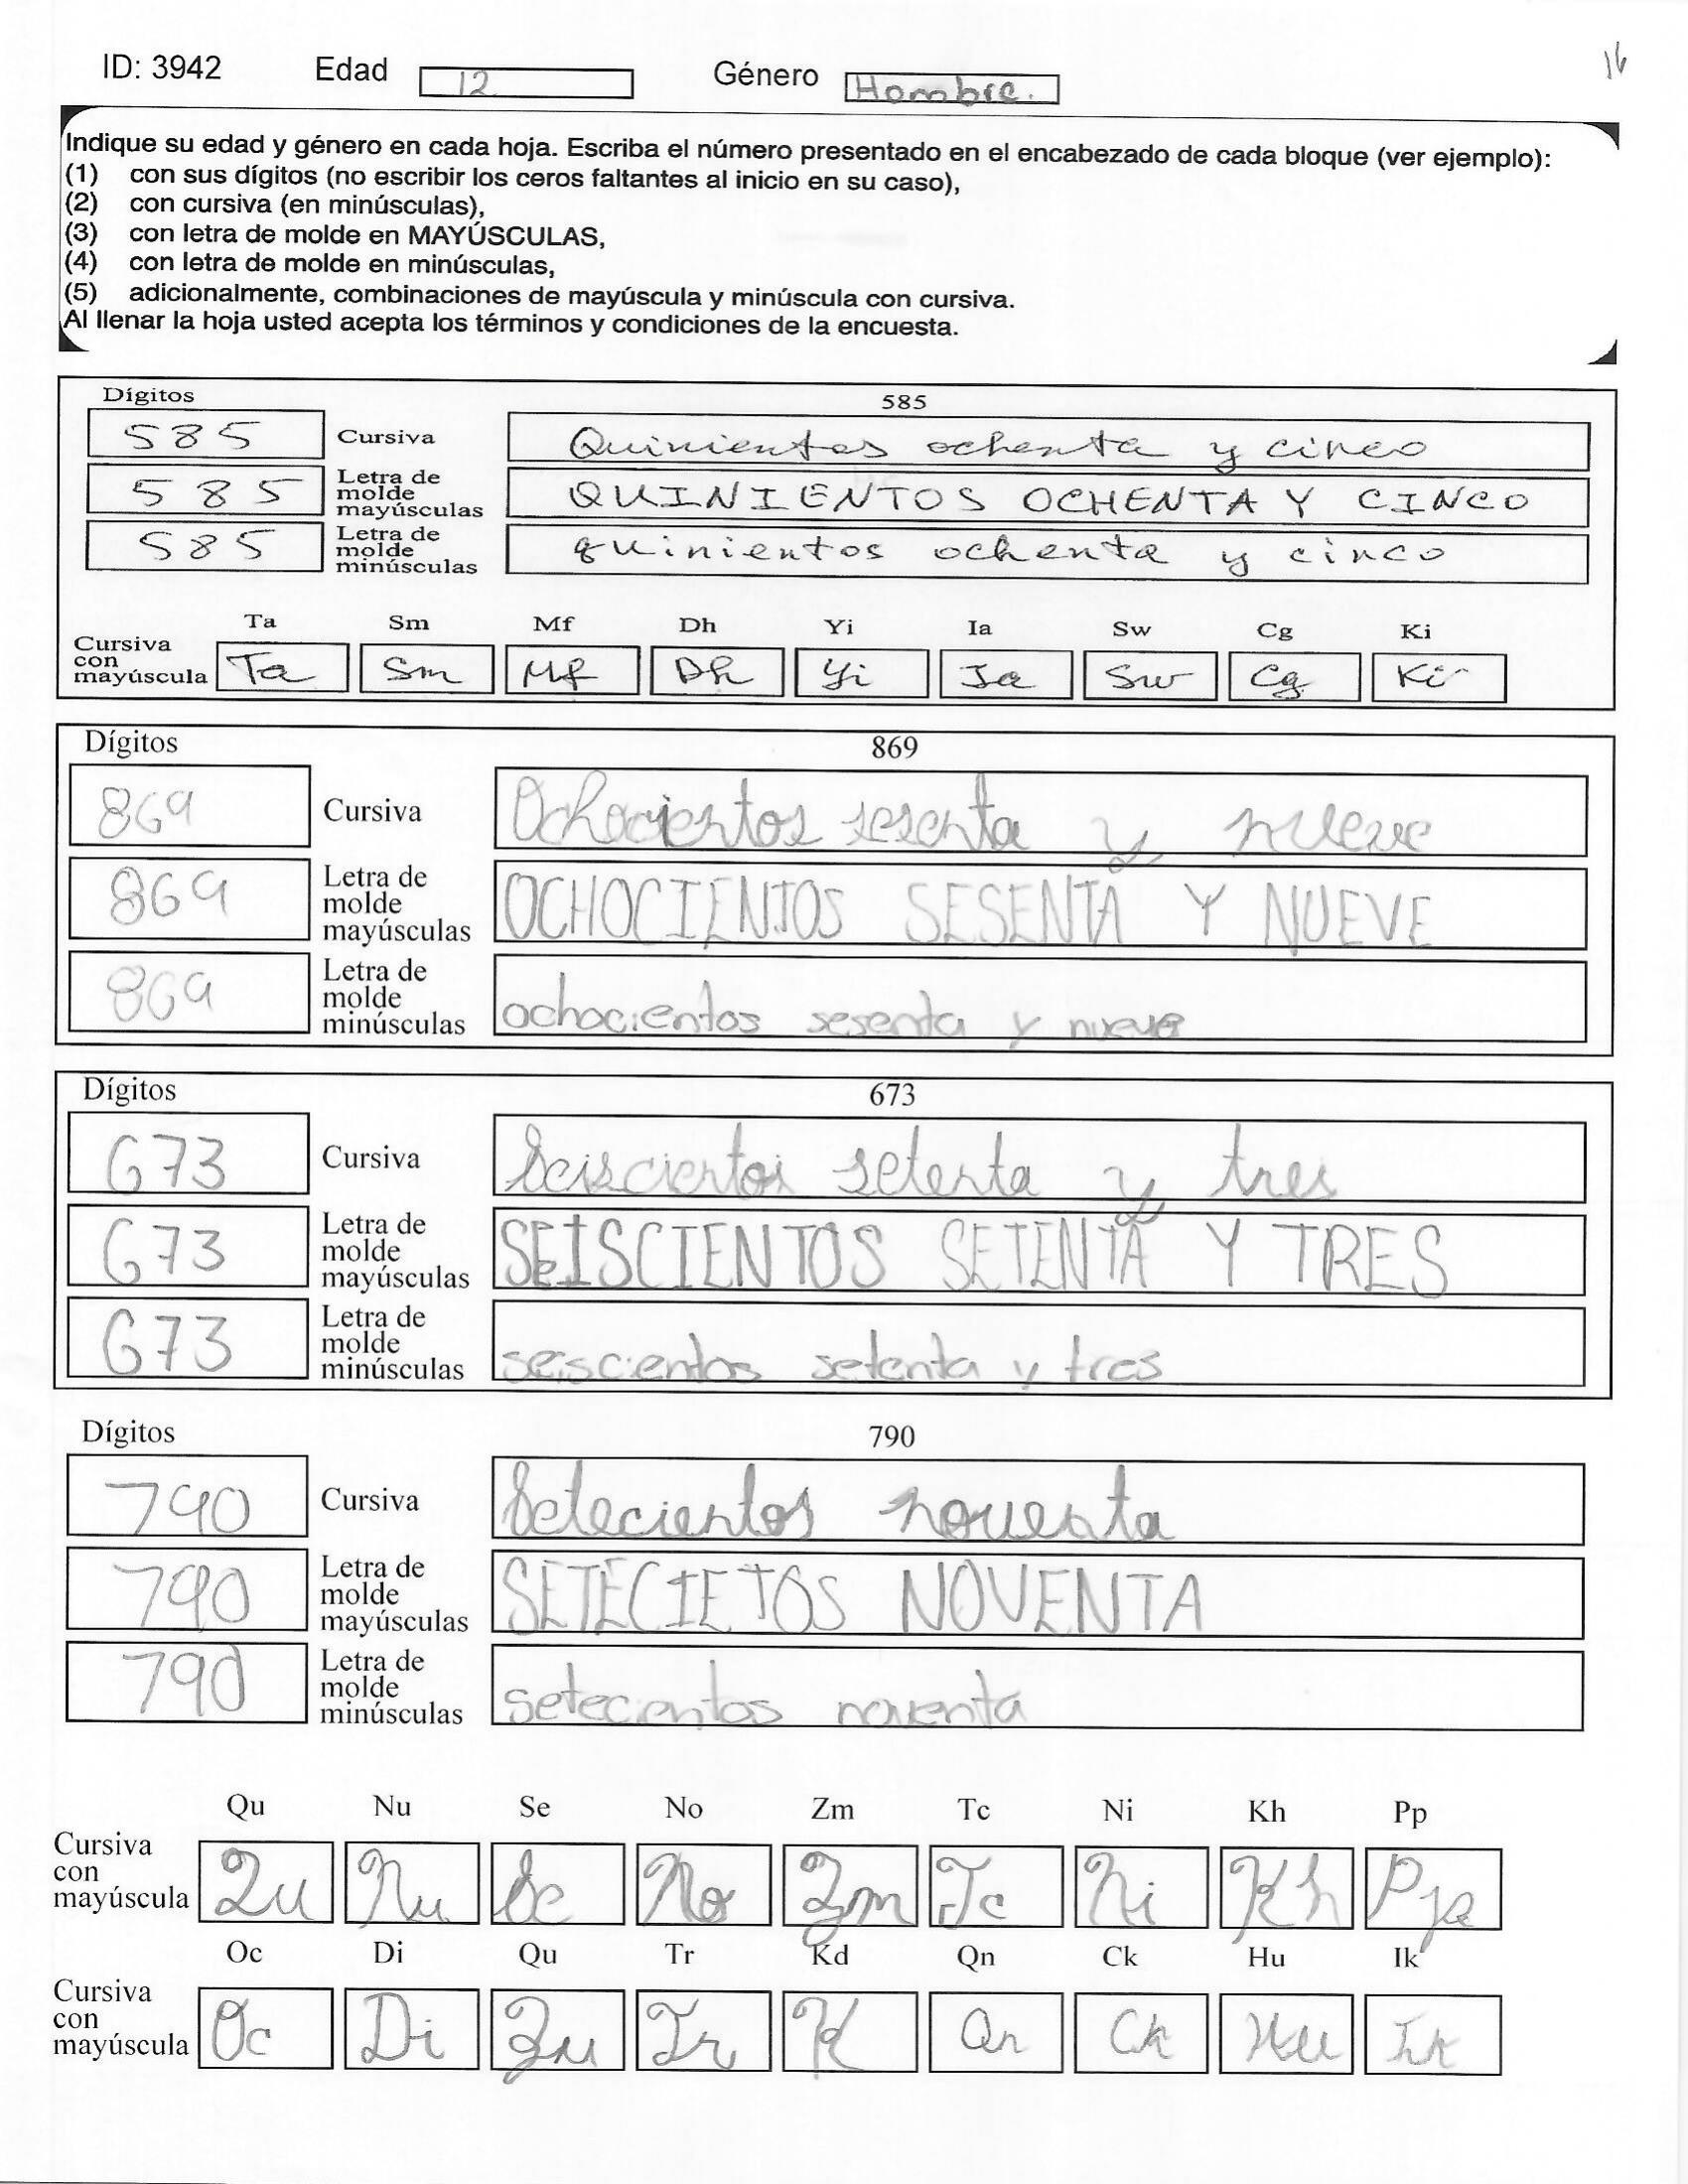 ID: 3942 Edad 12 Género Hombre. 16
Indique su edad y género en cada hoja. Escriba el número presentado en el encabezado de cada bloque (ver ejemplo):
(1) con sus dígitos (no escribir los ceros faltantes al inicio en su caso),
(2) con cursiva (en minúsculas),
(3) con letra de molde en MAYÚSCULAS,
(4) con letra de molde en minúsculas,
(5) adicionalmente, combinaciones de mayúscula y minúscula con cursiva.
Al llenar la hoja usted acepta los términos y condiciones de la encuesta.
Dígitos 585
585 Cursiva Quinientos ochenta y cinco
585 Letra de molde mayúsculas QUINIENTOS OCHENTA Y CINCO
585 Letra de molde minúsculas quinientos ochenta y cinco
Ta Sm Mf Dh Yi Ia Sw Cg Ki
Cursiva con mayúscula Ta Sm Mf Dh Yi Ia Sw Cg Ki
Dígitos 869
869 Cursiva Ochocientos sesenta y nueve
869 Letra de molde mayúsculas OCHOCIENTOS SESENTA Y NUEVE
869 Letra de molde minúsculas ochocientos sesenta y nueve
Dígitos 673
673 Cursiva Seiscientos setenta y tres
673 Letra de molde mayúsculas SEISCIENTOS SETENTA Y TRES
673 Letra de molde minúsculas seiscientos setenta y tres
Dígitos 790
790 Cursiva Setecientos noventa
790 Letra de molde mayúsculas SETECIETOS NOVENTA
790 Letra de molde minúsculas setecientos noventa
Qu Nu Se No Zm Tc Ni Kh Pp
Cursiva con mayúscula Qu Nu Se No Zm Tc Ni Kh Pp
Oc Di Qu Tr Kd Qn Ck Hu Ik
Cursiva con mayúscula Oc Di Qu Tr Qn Ck Hu Ik